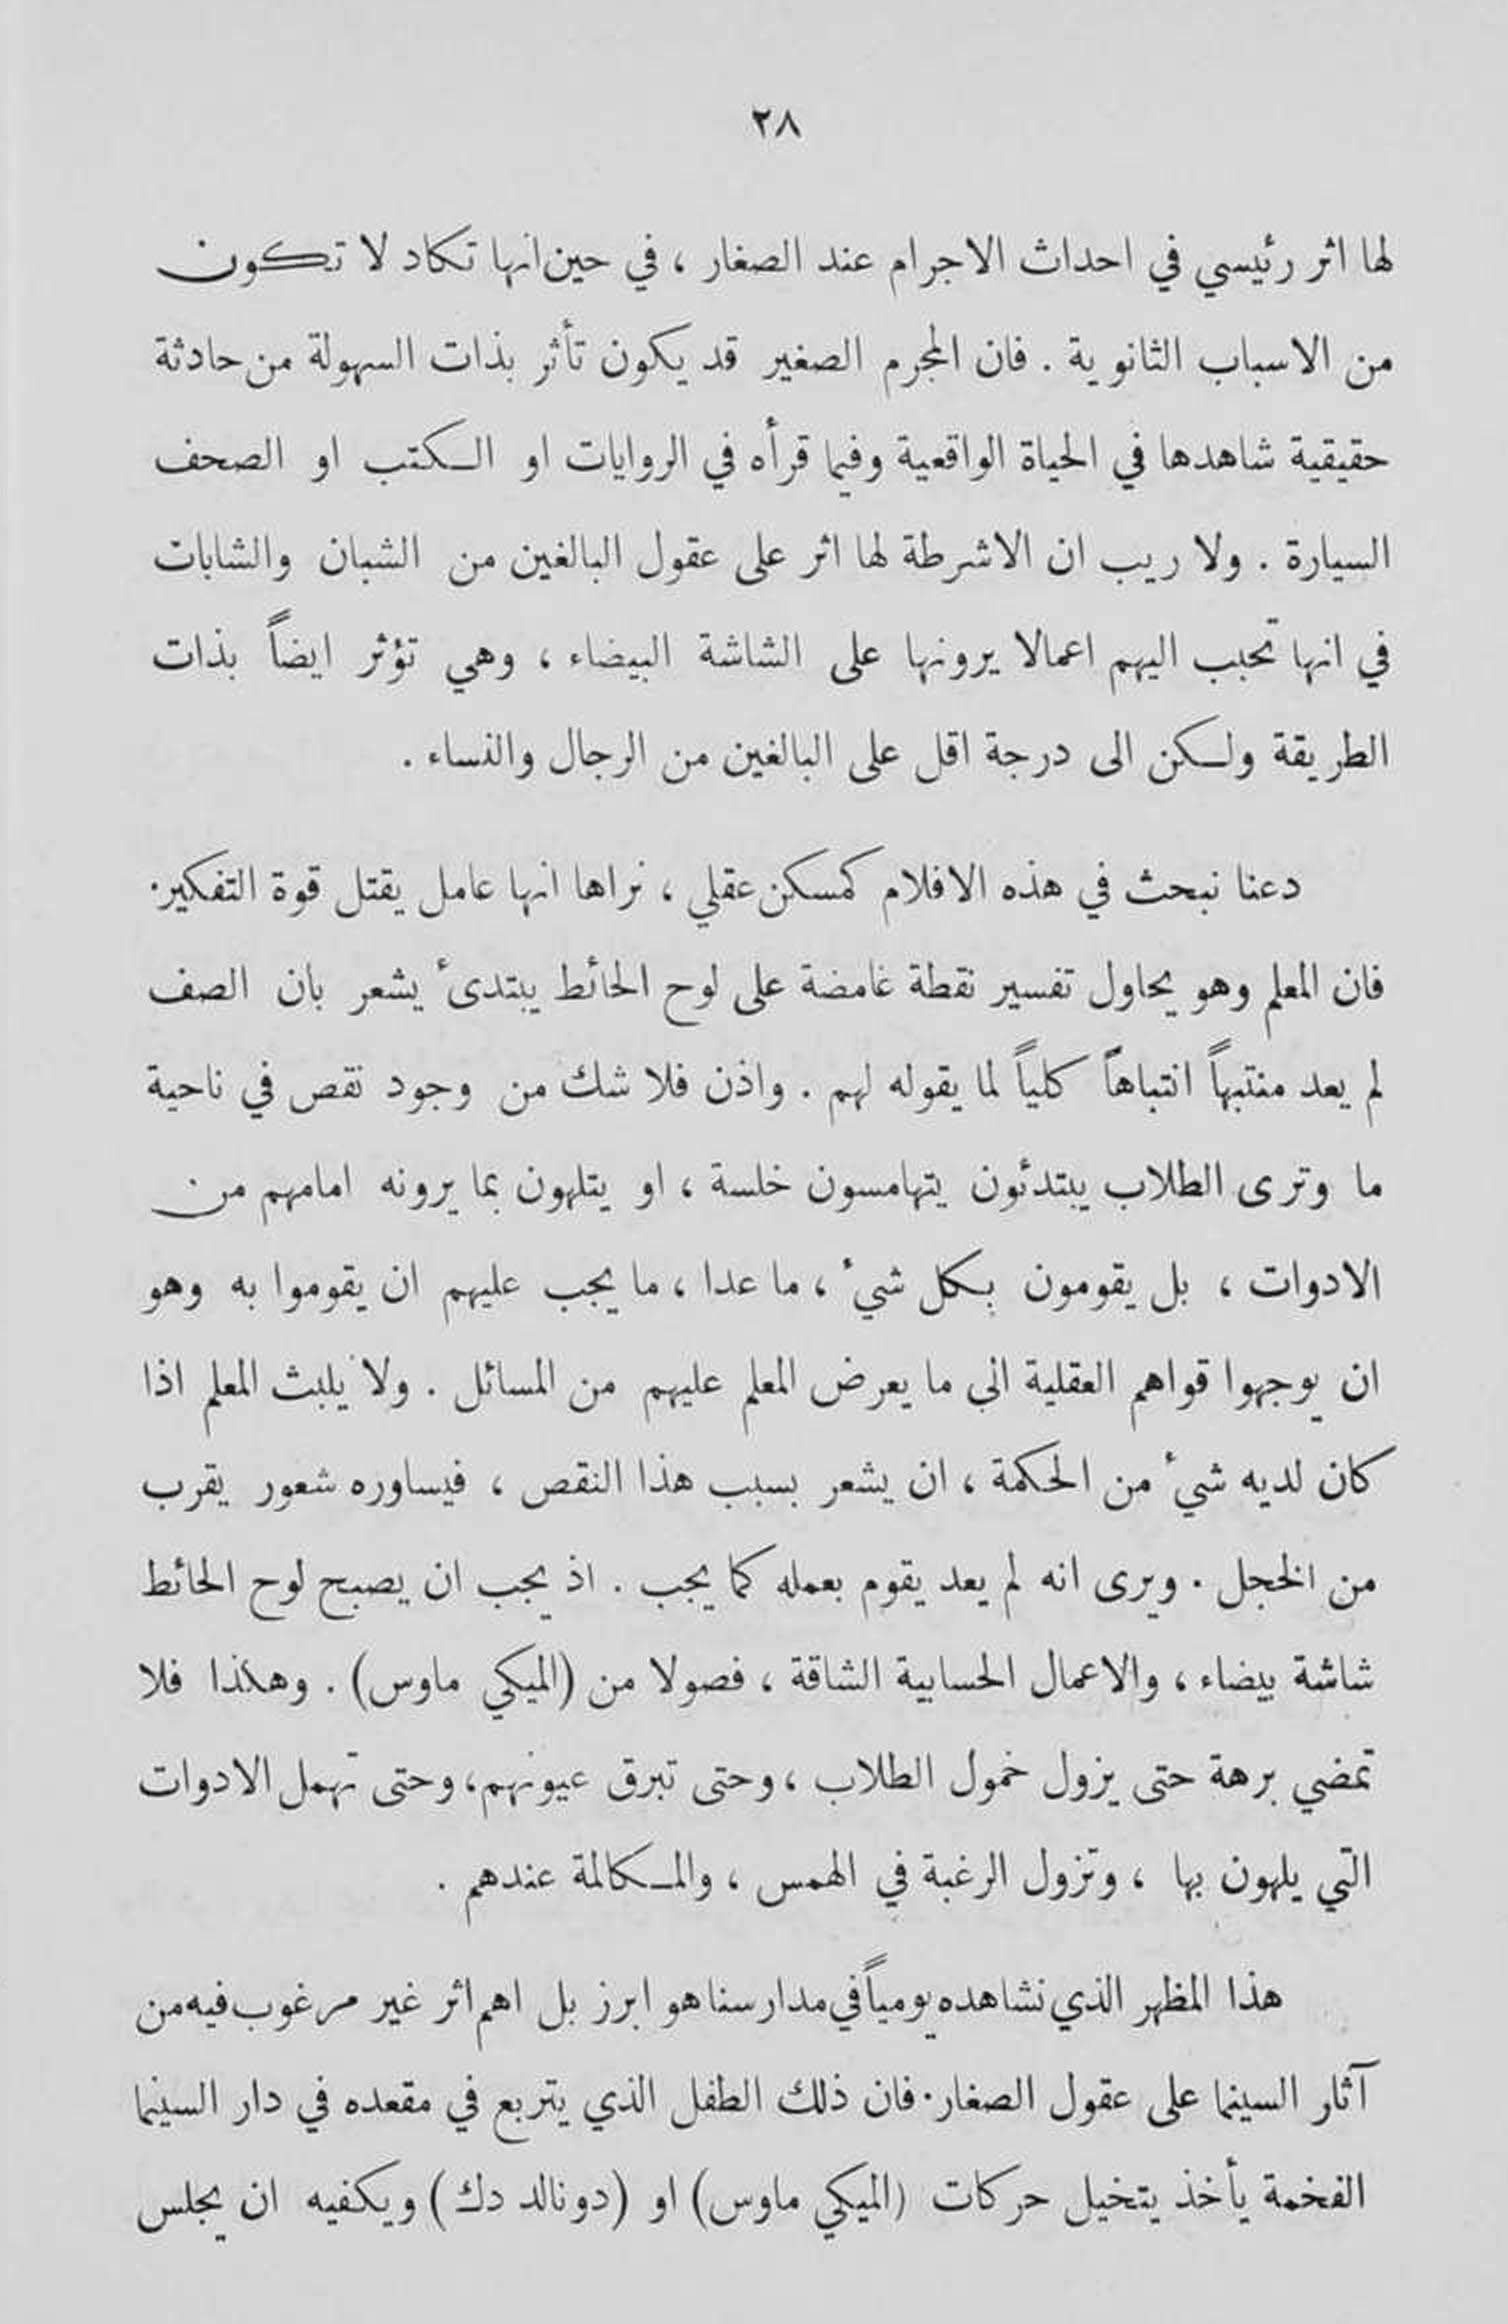 ٢٨
لها اثر رئيسي في احداث الاجرام عند الصغار ، في حين انها تكاد لا تكون
من الاسباب الثانوية . فان المجرم الصغير قد يكون تأثر بذات السهولة من حادثة
حقيقية شاهدها في الحياة الواقعية وفيما قرأه في الروايات او الكتب او الصحف
السيارة . ولا ريب ان الاشرطة لها اثر على عقول البالغين من الشبان والشابات
في انها تحبب اليهم اعمالا يرونها على الشاشة البيضاء ، وهي تؤثر ايضاً بذات
الطريقة ولكن الى درجة اقل على البالغين من الرجال والنساء .
دعنا نبحث في هذه الافلام كمسكن عقلي ، نراها انها عامل يقتل قوة التفكير.
فان المعلم وهو يحاول تفسير نقطة غامضة على لوح الحائط يبتدىء يشعر بان الصف
لم يعد منتبهاً انتباهاً كلياً لما يقوله لهم . واذن فلا شك من وجود نقص في ناحية
ما وترى الطلاب يبتدئون يتهامسون خلسة ، او يتلهون بما يرونه امامهم من
الادوات ، بل يقومون بكل شيء ، ما عدا ، ما يجب عليهم ان يقوموا به وهو
ان يوجهوا قواهم العقلية الى ما يعرض المعلم عليهم من المسائل . ولا يلبث المعلم اذا
كان لديه شيء من الحكمة ، ان يشعر بسبب هذا النقص ، فيساوره شعور يقرب
من الخجل . ويرى انه لم يعد يقوم بعمله كما يجب . اذ يجب ان يصبح لوح الحائط
شاشة بيضاء ، والاعمال الحسابية الشاقة ، فصولا من (الميكي ماوس) . وهكذا فلا
تمضي برهة حتى يزول خمول الطلاب ، وحتى تبرق عيونهم، وحتى تهمل الادوات
التي يلهون بها ، وتزول الرغبة في الهمس ، والمكالمة عندهم .
هذا المظهر الذي نشاهده يومياً في مدارسنا هو ابرز بل اهم اثر غير مرغوب فيه من
آثار السينما على عقول الصغار. فان ذلك الطفل الذي يتربع في مقعده في دار السينما
الفخمة يأخذ يتخيل حركات (الميكي ماوس) او (دونالد دك) ويكفيه ان يجلس